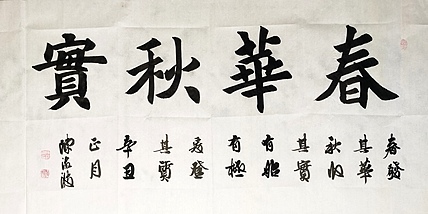 春華秋實
春發
其華
秋收
其實
有始
有極
爰登
其質
辛丑
正月